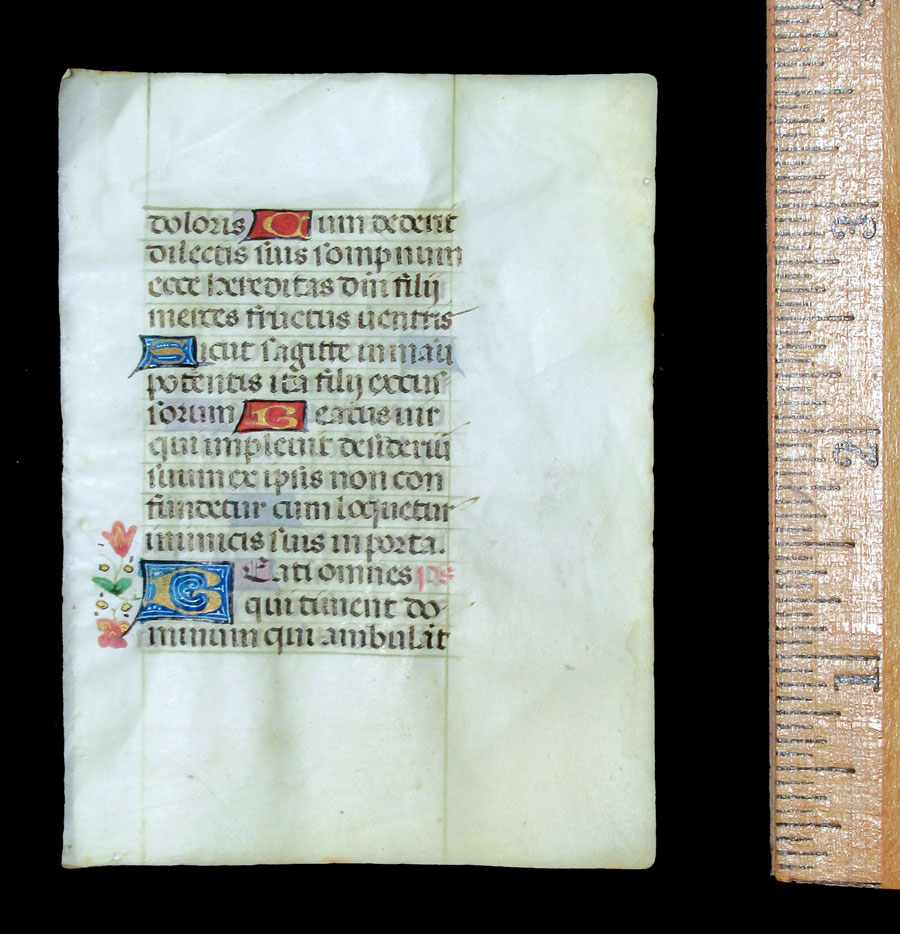 doloris Cum dederit
dilectis suis sompnum
ecce hereditas dn̄i filij
merces fructus uentris
Sicut sagitte in manu
potentis ita filij excus
sorum Beatus uir
qui impleuit desideriū
suum ex ipsis non con
fundetur cum loquetur
inimicis suis in porta.
Beati omnes ps
qui timent do
minum qui ambulāt
4
3
2
1